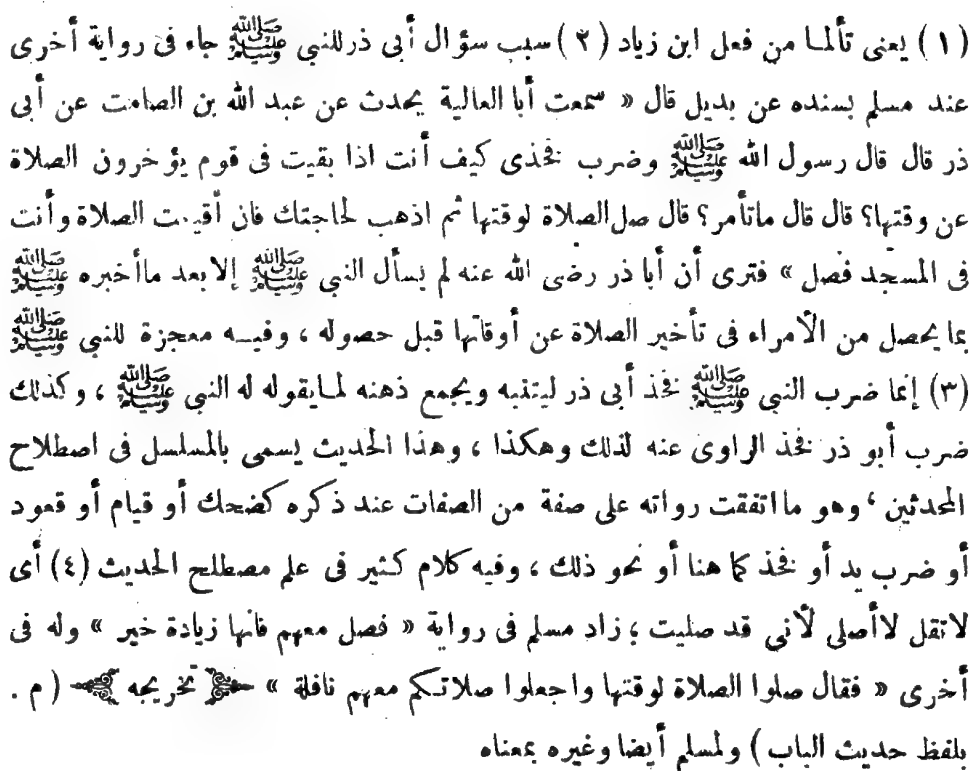 (١) يعنى تألما من فعل ابن زياد (٢) سبب سؤال أبى ذر للنبى ﷺ جاء فى رواية أخرى
عند مسلم بسنده عن بديل قال « سمعت أبا العالية يحدث عن عبد الله بن الصامت عن أبى
ذر قال قال رسول الله ﷺ وضرب فخذى كيف أنت اذا بقيت فى قوم يؤخرون الصلاة
عن وقتها؟ قال قال ماتأمر؟ قال صل الصلاة لوقتها ثم اذهب لحاجتك فان أقيمت الصلاة وأنت
فى المسجد فصل » فترى أن أبا ذر رضى الله عنه لم يسأل النبى ﷺ إلا بعد ماأخبره ﷺ
بما يحصل من الأمراء فى تأخير الصلاة عن أوقاتها قبل حصوله ، وفيه معجزة للنبى ﷺ
(٣) إنما ضرب النبى ﷺ فخذ أبى ذر ليتنبه ويجمع ذهنه لما يقوله له النبى ﷺ ، وكذلك
ضرب أبو ذر فخذ الراوى عنه لذلك وهكذا ، وهذا الحديث يسمى بالمسلسل فى اصطلاح
المحدثين ، وهو مااتفقت رواته على صفة من الصفات عند ذكره كضحك أو قيام أو قعود
أو ضرب يد أو فخذ كما هنا أو نحو ذلك ، وفيه كلام كثير فى علم مصطلح الحديث (٤) أى
لاتقل لاأصلى لأنى قد صليت ؛ زاد مسلم فى رواية « فصل معهم فانها زيادة خير » وله فى
أخرى « فقال صلوا الصلاة لوقتها واجعلوا صلاتكم معهم نافلة » تخريجه ( م .
بلفظ حديث الباب ) ولمسلم أيضا وغيره بمعناه